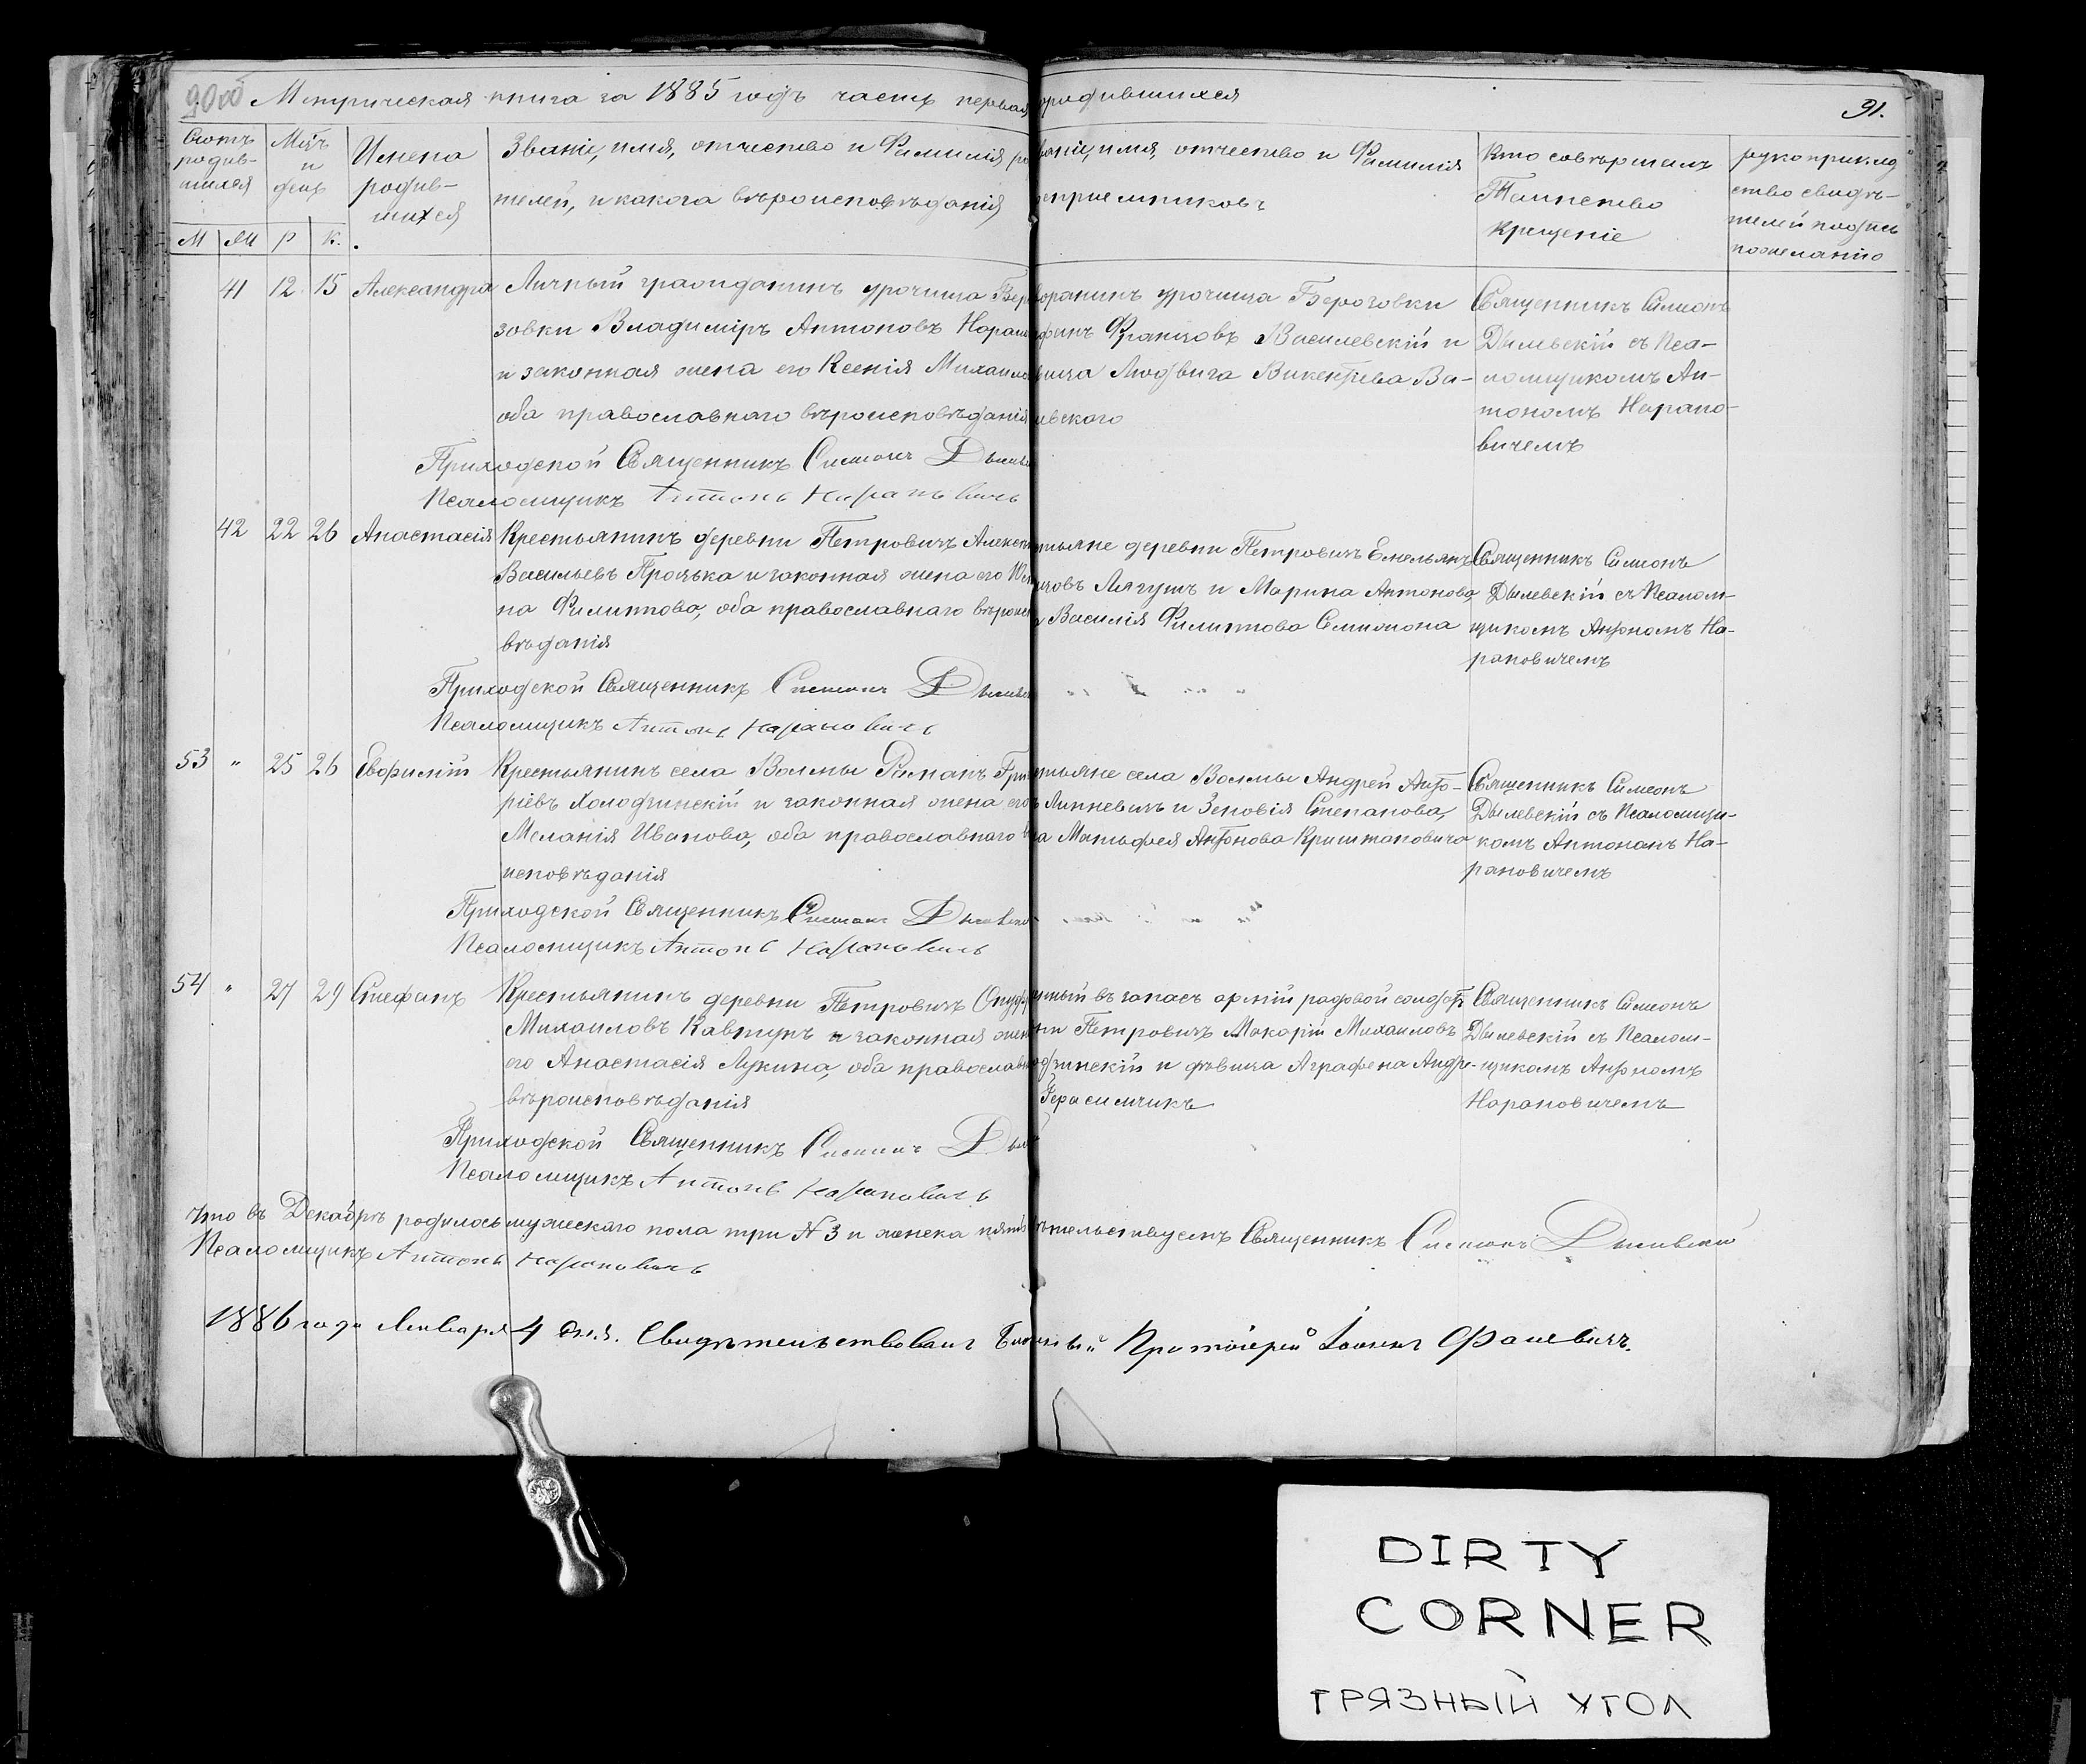 90об Метрическая книга за 1885 годъ часть первая
родившихся
91.
Счотъ родив-шихся
Мѣс͠ц и день
Имена родив-шихся
Званіе, имя, отчество и Фамилія ро
телей, и какога вѣроисповѣданія
ваніе, имя, отчество и Фамилія
епріемниковъ
Кто совершалъ
Таинство
Крещеніе
рукоприклад
ство свидѣ-
телей подпись
пожеланію
М Ж Р К.
41 12 15 Александра Личный гражданинъ урочища Бер
зовки Владиміръ Антоновъ Наран
и законная жена его Ксенія Михаило
оба православнаго вѣроисповѣданія
Приходской Священникъ Симеонъ Дылев
Псаломщикъ Антонъ Нарановичъ
воранинъ урочища Березовки
Францовъ Василевскій и
вица Людвига Викентіева Ва-
илевскаго
Священникъ Симеонъ
Дылевскій съ Пса-
ломщикомъ Ан-
тономъ Нарано-
вичемъ
42 22 26 Анастасія Крестьянинъ деревни Петровичъ Алекс
Васильевъ Проська и законная жена его
на Филиппова, оба православнаго вѣроис
вѣданія
Приходской Священникъ Симеонъ Дылев
Псаломщикъ Антонъ Нарановичъ
тьяне деревни Петровичъ Емельянъ
Лягушъ и Марина Антонова,
Василія Филиппова Семиона
Священникъ Симеонъ
Дылевскій съ Псалом-
щикомъ Антономъ На-
рановичемъ
53 " 25 26 Евфимій Крестьянинъ села Волмы Романъ Гри
ріевъ Холодзинскій и законная жена его
Меланія Иванова, оба православнаго в
исповѣданія
Приходской Священникъ Симеонъ Дылевск
Псаломщикъ Антонъ Нарановичъ
тьяне села Волмы Андрей Анто-
Липневичъ и Зеновія Степанова,
а Матѳея Антонова Криштановича
Священникъ Симеонъ
Дылевскій съ Псаломщи-
комъ Антономъ На-
рановичемъ
54 " 27 29 Стефанъ Крестьянинъ деревни Петровичъ Онуфр
Михаиловъ Кавтунъ и законная жен
его Анастасія Лукина, оба православн
вѣроисповѣданія
Приходской Священникъ Симеонъ Дыл
Псаломщикъ Антонъ Нарановичъ
нный въ запасъ арміи рядовой солдатъ
ни Петровичъ Макарій Михаиловъ
одзинскій и дѣвица Аграфена Андре-
Герасимчикъ
Священникъ Симеонъ
Дылевскій съ Псалом-
щикомъ Антономъ
Нарановичемъ
Что въ Декабрѣ родилось мужескаго пола три № 3 и женска пять
ѣтельствуемъ Священникъ Симеонъ Дылевскій
Псаломщикъ Антонъ Нарановичъ
1886 года Января 4 дня. Свидѣтельствовалъ Протоіерей Іоаннъ
DIRTY
CORNER
ГРЯЗНЫЙ УГОЛ